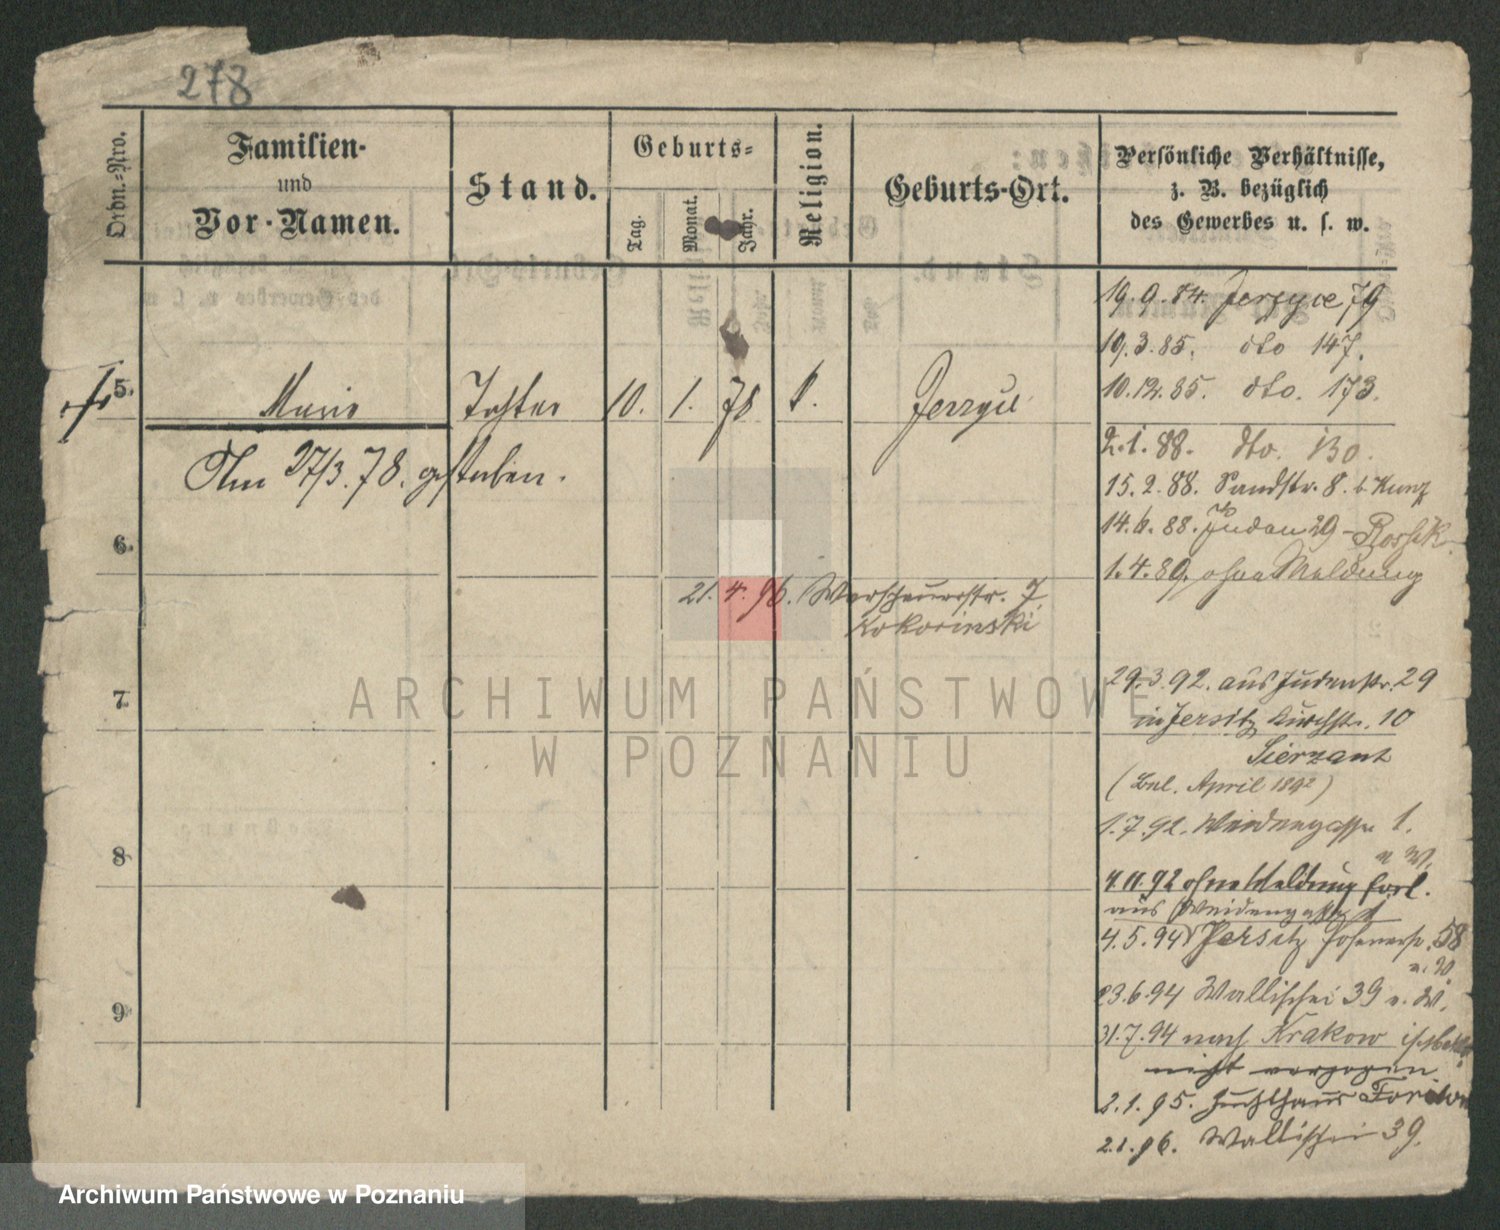 278
Ordn.-Nro.
Familien-
und
Vor-Namen.
Stand.
Geburts-
Tag.
Monat.
Jahr.
Religion.
Geburts-Ort.
Persönliche Verhältnisse,
z. B. bezüglich
des Gewerbes u. s. w.
19.9.84. Jerzyce 79
19.3.85. dto 147.
10.12.85. dto. 173.
5. Marie Tochter 10. 1. 78 Jerzyce
2.1.88. dto. 130.
Am 27/3.78. gestorben.
15.2.88. Sandstr. 8. b. Kunz
14.6.88. Juden 29
6.
1.4.89. ohne Meldung
21.4.96. Warschauerstr. 7
Kokorinski
29.3.92. aus Judenstr. 29
7.
in Jersitz Kirchstr. 10
Sierzant
April 1892)
1.7.92. Weidengasse 1.
n. W.
8.
4.11.92 ohne Meldung fort.
aus Weidengasse 1
4.5.94 Jersitz Posenerstr. 58
n. W.
23.6.94 Wallischei 39 n. W.
9.
31.7.94 nach Krakow
nicht verzogen
2.1.95. Zuchthaus Fordon
2.1.96. Wallischei 39.
ARCHIWUM PAŃSTWOWE
W POZNANIU
Archiwum Państwowe w Poznaniu